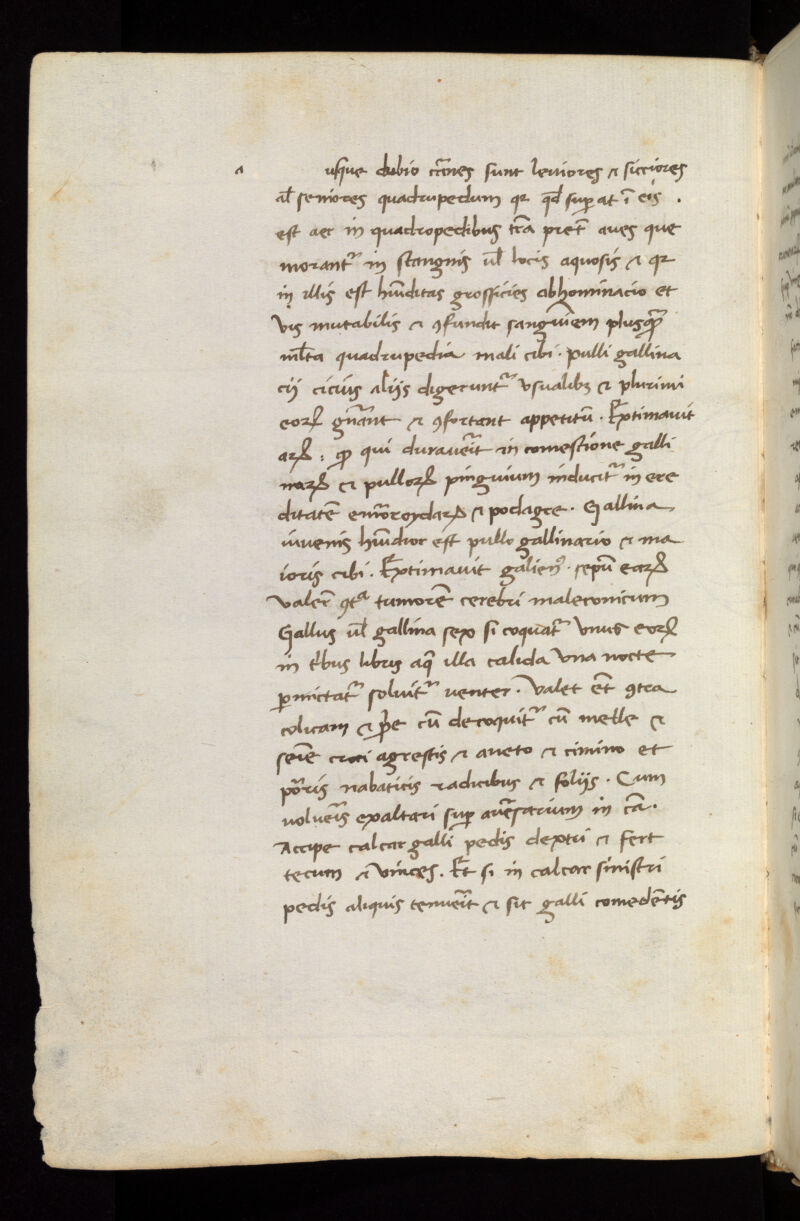 a usque dubio carnes sunt leviores et sicciores
al seniores quadrupedum qr qd superat i eis .
est aer in quadropedibus terra preter aves que
morantr in stangnis ul locis aquosis et qr
in illis est humditas grossicies abhominacio et
vis mutabilis et 9fundit sanguinem plusquam
multa quadrupedia mali cibi . pulli gallina
cij cicius aliis digeruntr usualibus et plurimi
eorum et 9fortant appetitu . Extimavit
qui duraverit in comestione galli
narum et pullorum pinguium inducitr in ere
ditate emoroydarum et podagre . Gallina
iuvenis humdior est pullo gallinario et ma
ioris cibi . Extimavit galien9 . sepum earum
valere 9tra tumore cerebri maleconicum
Gallus ul gallina sexo si coquatr unus eorum
in tribus libris aq illa calida una nocte
permictatr solvitr venter . Valet et 9tra
colicam et cu decoquitr cu melle et
seme croci agrestis et aneto et cimino et
porris nabaticis radicibus et foliis . Cum
volueris exaltari super aversarium in ca .
Accipe calcar galli pedis dextri et fert
tecum et vinces . Et si in calcar sinistri
pedis aliquis tenuerit et sit galli comedentis